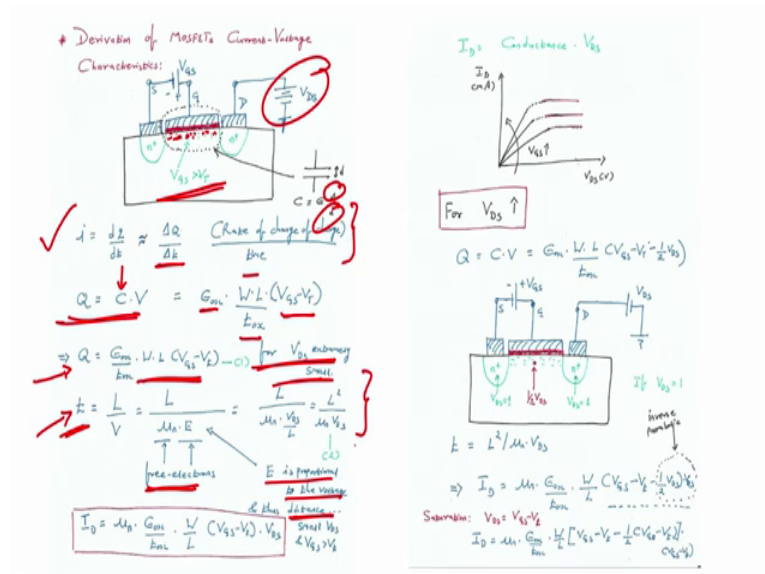 * Derivation of MOSFETs Current-Voltage
Characteristics:
VGS
S
-
G
D
VDS
n+
n+
VGS > VT
d
C = ϵ A
d
i = dq/dt ≈ ΔQ/Δt (Rate of charge of charge)
time
Q = C·V = ϵox · W·L·(VGS-VT)
tox
⇒ Q = ϵox/tox · W·L (VGS-Vt) —(1) for VDS extremely
small.
t = L/V = L/(μn·E) = L/(μn·VDS/L) = L²/(μn VDS)
(2)
free-electrons
E is proportional
to the voltage
& thus distance...
small VDS
& VGS>Vt
ID = μn · ϵox/tox · W/L (VGS-Vt)·VDS
ID = Conductance · VDS
ID
(mA)
VGS↑
VDS(V)
For VDS ↑
Q = C·V = ϵox · W·L/tox (VGS-VT-½VDS)
- +VGS
S
G
D
VDS
n+
n+
½VDS
VDS=1
If VDS=1
inverse
parabolic
t = L²/μn·VDS
⇒ ID = μn · ϵox/tox · W/L (VGS-Vt-½VDS)VDS
Saturation: VDS = VGS-Vt
ID = μn · ϵox/tox · W/L [VGS-Vt-½(VGS-Vt)]·
(VGS-Vt)